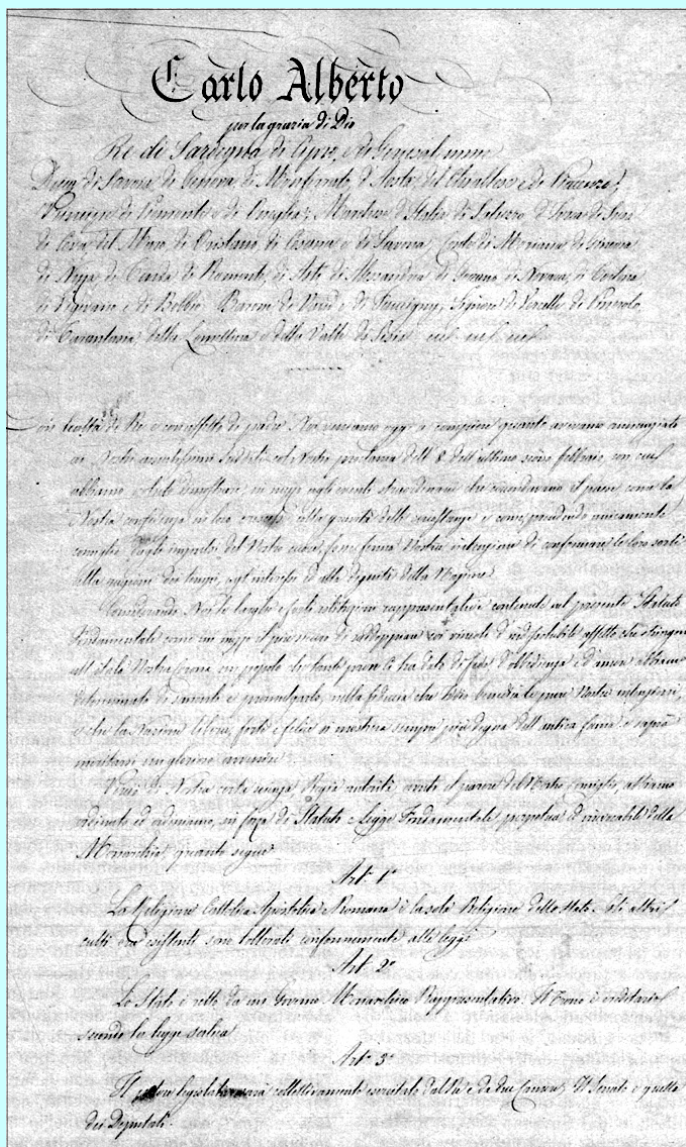 Carlo Alberto
per la grazia di Dio
Re di Sardegna, di Cipro, e di Gerusalemme
Duca di Savoia, di Genova, di Monferrato, d'Aosta, del Chiablese, e di Piacenza;
Principe di Piemonte e di Oneglia; Marchese d'Italia, di Saluzzo, d'Ivrea, di Susa
di Ceva, del Maro, di Oristano, di Cesana e di Savona; Conte di Moriana, di Ginevra
di Nizza, di Tenda, di Romonte, di Asti, di Alessandria, di Goceano, di Novara, di Tortona
di Vigevano e di Bobbio; Barone di Vaud e di Faucigny; Signore di Vercelli, di Pinerolo
di Tarantasia, della Lomellina e della Valle di Sesia
Con lealtà di Re e con affetto di padre Noi veniamo oggi a compiere quanto avevamo annunziato
ai Nostri amatissimi sudditi col Nostro proclama dell'8 dell'ultimo scorso febbraio, con cui
abbiamo voluto dimostrare, in mezzo agli eventi straordinarii che circondavano il paese, come la
Nostra confidenza in loro crescesse colla gravità delle circostanze, e come prendendo unicamente
consiglio dagli impulsi del Nostro cuore, fosse ferma Nostra intenzione di conformare le loro sorti
alla ragione dei tempi, agl'interessi ed alla dignità della Nazione.
Considerando Noi le larghe e forti istituzioni rappresentative contenute nel presente Statuto
Fondamentale come un mezzo il più sicuro di raddoppiare coi vincoli d'indissolubile affetto che stringono
all'itala Nostra Corona un popolo, che tante prove Ci ha dato di fede, d'obbedienza e d'amore, abbiamo
determinato di sancirlo e promulgarlo, nella fiducia che Iddio benedirà le pure Nostre intenzioni,
e che la Nazione libera, forte e felice si mostrerà sempre più degna dell'antica fama e saprà
meritarsi un glorioso avvenire.
Perciò di Nostra certa scienza, Regia autorità, avuto il parere del Nostro Consiglio, abbiamo
ordinato ed ordiniamo, in forza di Statuto e Legge Fondamentale, perpetua ed irrevocabile della
Monarchia, quanto segue
Art. 1º
La Religione Cattolica Apostolica e Romana è la sola Religione dello Stato. Gli altri
culti ora esistenti sono tollerati conformemente alle leggi
Art. 2º
Lo Stato è retto da un Governo Monarchico Rappresentativo. Il Trono è ereditario
secondo la legge salica
Art. 3º
Il potere legislativo sarà collettivamente esercitato dal Re e da due Camere, il Senato e quella
dei Deputati.